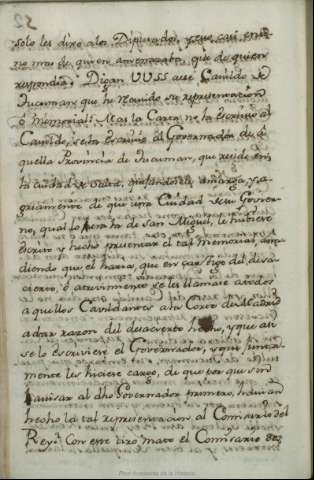 52
solo les dixo a los Diputados, y en casi
no mas de quien amenazaba, que de quien
respondia: Digan VVSS a ese Cavildo de
Tucuman que he recivido su representacion
ô Memorial: Mas la Carta no la escrivio al
Cavildo, se la escrivió al Governador de a-
quella Provincia de Tucuman, que reside en
la ciudad de Salta, quejandose amarga, y a-
griamente de que una Ciudad de su Govier-
no, qual lo era la de San Miguel, le huviese
escrito y hecho presentar el tal memorial, aña-
diendo que el haria, que en castigo del desa-
cierto, ô atrevimiento se les llamase a todos
a aquellos Cavildantes a la Corte de Madrid
a dar razon del desacierto hecho, y que asi
se lo escriviese el Governador, y que junta-
mente les hiciese cargo, de que por que sin
avisar al dho Governador primero, havian
hecho la tal representacion al Comisario del
Rey. Con este dixo mato el Comisario
Real Academia de la Historia